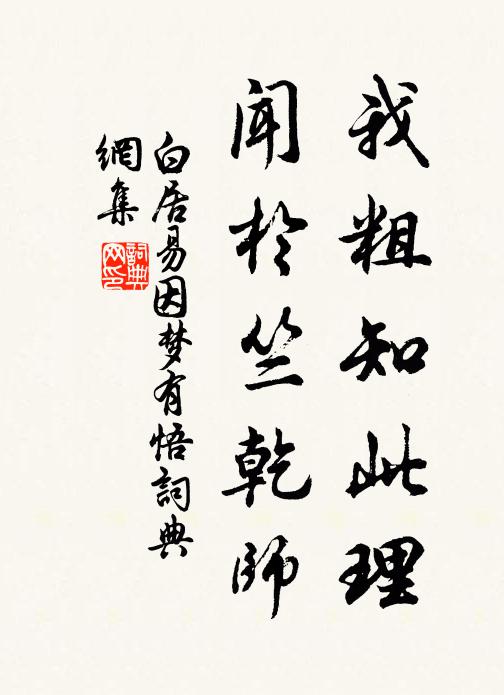 我粗知此理
聞於竺乾師
白居易因梦有悟詞典
網集
詞典网印